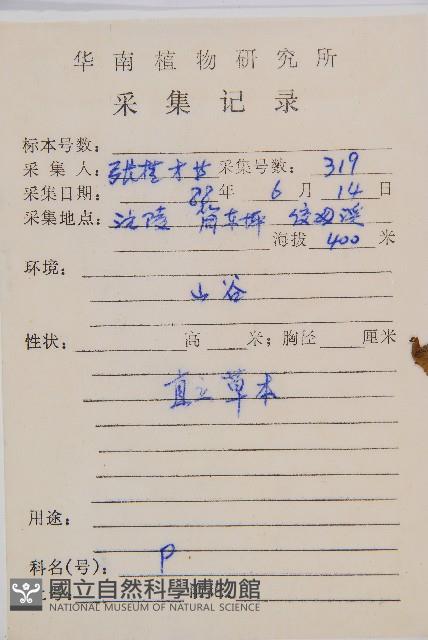 华南植物研究所
采集记录
标本号数：
采集人：张桂才等 采集号数：319
采集日期：88年6月14日
采集地点：沅陵 筒车坪
海拔 400 米
环境：
山谷
性状： 高 米；胸径 厘米
直立草本
用途：
科名(号)： P
國立自然科學博物館
NATIONAL MUSEUM OF NATURAL SCIENCE